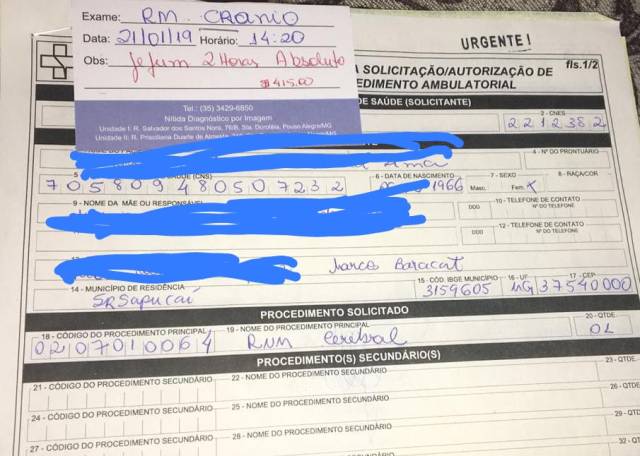 Exame: RM. CRANIO
Data: 21/01/19 Horário: 14:20
Obs: Jejum 2 Horas Absoluto
$415,00
Tel.: (35) 3429-6850
Nítida Diagnóstico por Imagem
Unidade I: R. Salvador dos Santos Nora, 76/B, Sta. Dorotéia, Pouso Alegre/MG
Unidade II: R. Prisciliana Duarte de Almeida
URGENTE!
fls.1/2
SOLICITAÇÃO/AUTORIZAÇÃO DE
PROCEDIMENTO AMBULATORIAL
DE SAÚDE (SOLICITANTE)
2 - CNES
2212382
4 - Nº DO PRONTUÁRIO
(CNS) 6 - DATA DE NASCIMENTO 7 - SEXO 8 - RAÇA/COR
705809480507232 1966 Masc. Fem. X
9 - NOME DA MÃE OU RESPONSÁVEL 10 - TELEFONE DE CONTATO
DDD Nº DO TELEFONE
12 - TELEFONE DE CONTATO
DDD Nº DO TELEFONE
Marcos Baracat
14 - MUNICÍPIO DE RESIDÊNCIA 15 - CÓD. IBGE MUNICÍPIO 16 - UF 17 - CEP
SRSapucaí 3159605 MG 37540000
PROCEDIMENTO SOLICITADO
18 - CÓDIGO DO PROCEDIMENTO PRINCIPAL 19 - NOME DO PROCEDIMENTO PRINCIPAL 20 - QTDE.
0207010064 RNM Cerebral 01
PROCEDIMENTO(S) SECUNDÁRIO(S)
21 - CÓDIGO DO PROCEDIMENTO SECUNDÁRIO 22 - NOME DO PROCEDIMENTO SECUNDÁRIO 23 - QTDE.
24 - CÓDIGO DO PROCEDIMENTO SECUNDÁRIO 25 - NOME DO PROCEDIMENTO SECUNDÁRIO 26 - QTDE.
29 - QTD
27 - CÓDIGO DO PROCEDIMENTO SECUNDÁRIO 28 - NOME DO PROCEDIMENTO SECUNDÁRIO
32 - QT